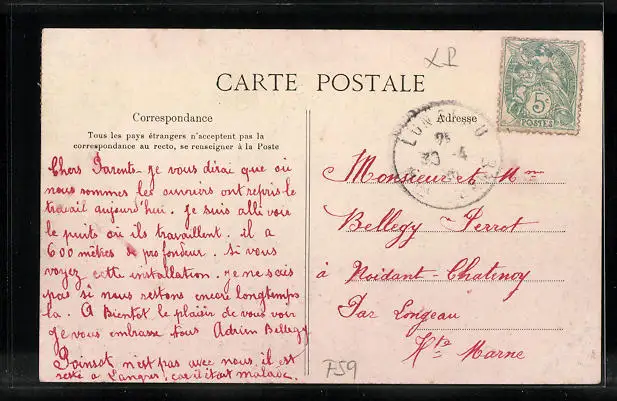 XP
CARTE POSTALE
Correspondance
Tous les pays étrangers n'acceptent pas la
correspondance au recto, se renseigner à la Poste
Chers Parents - je vous dirai que où
nous sommes les ouvriers ont repris le
travail aujourd'hui. je suis allé voir
le puits où ils travaillent. il a
600 mètres de profondeur. si vous
voyez cette installation. je ne sais
pas si nous restons encore longtemps
la. A Bientot le plaisir de vous voir
je vous embrasse tous Adrien Bellegy
Poinsot n'est pas avec nous, il est
resté a Langres, car il était malade.
Adresse
5c
POSTES
30 -4
Monsieur et Mme
Bellegy - Perrot
à Noidant-Chatenoy
Par Longeau
Hte Marne
F59